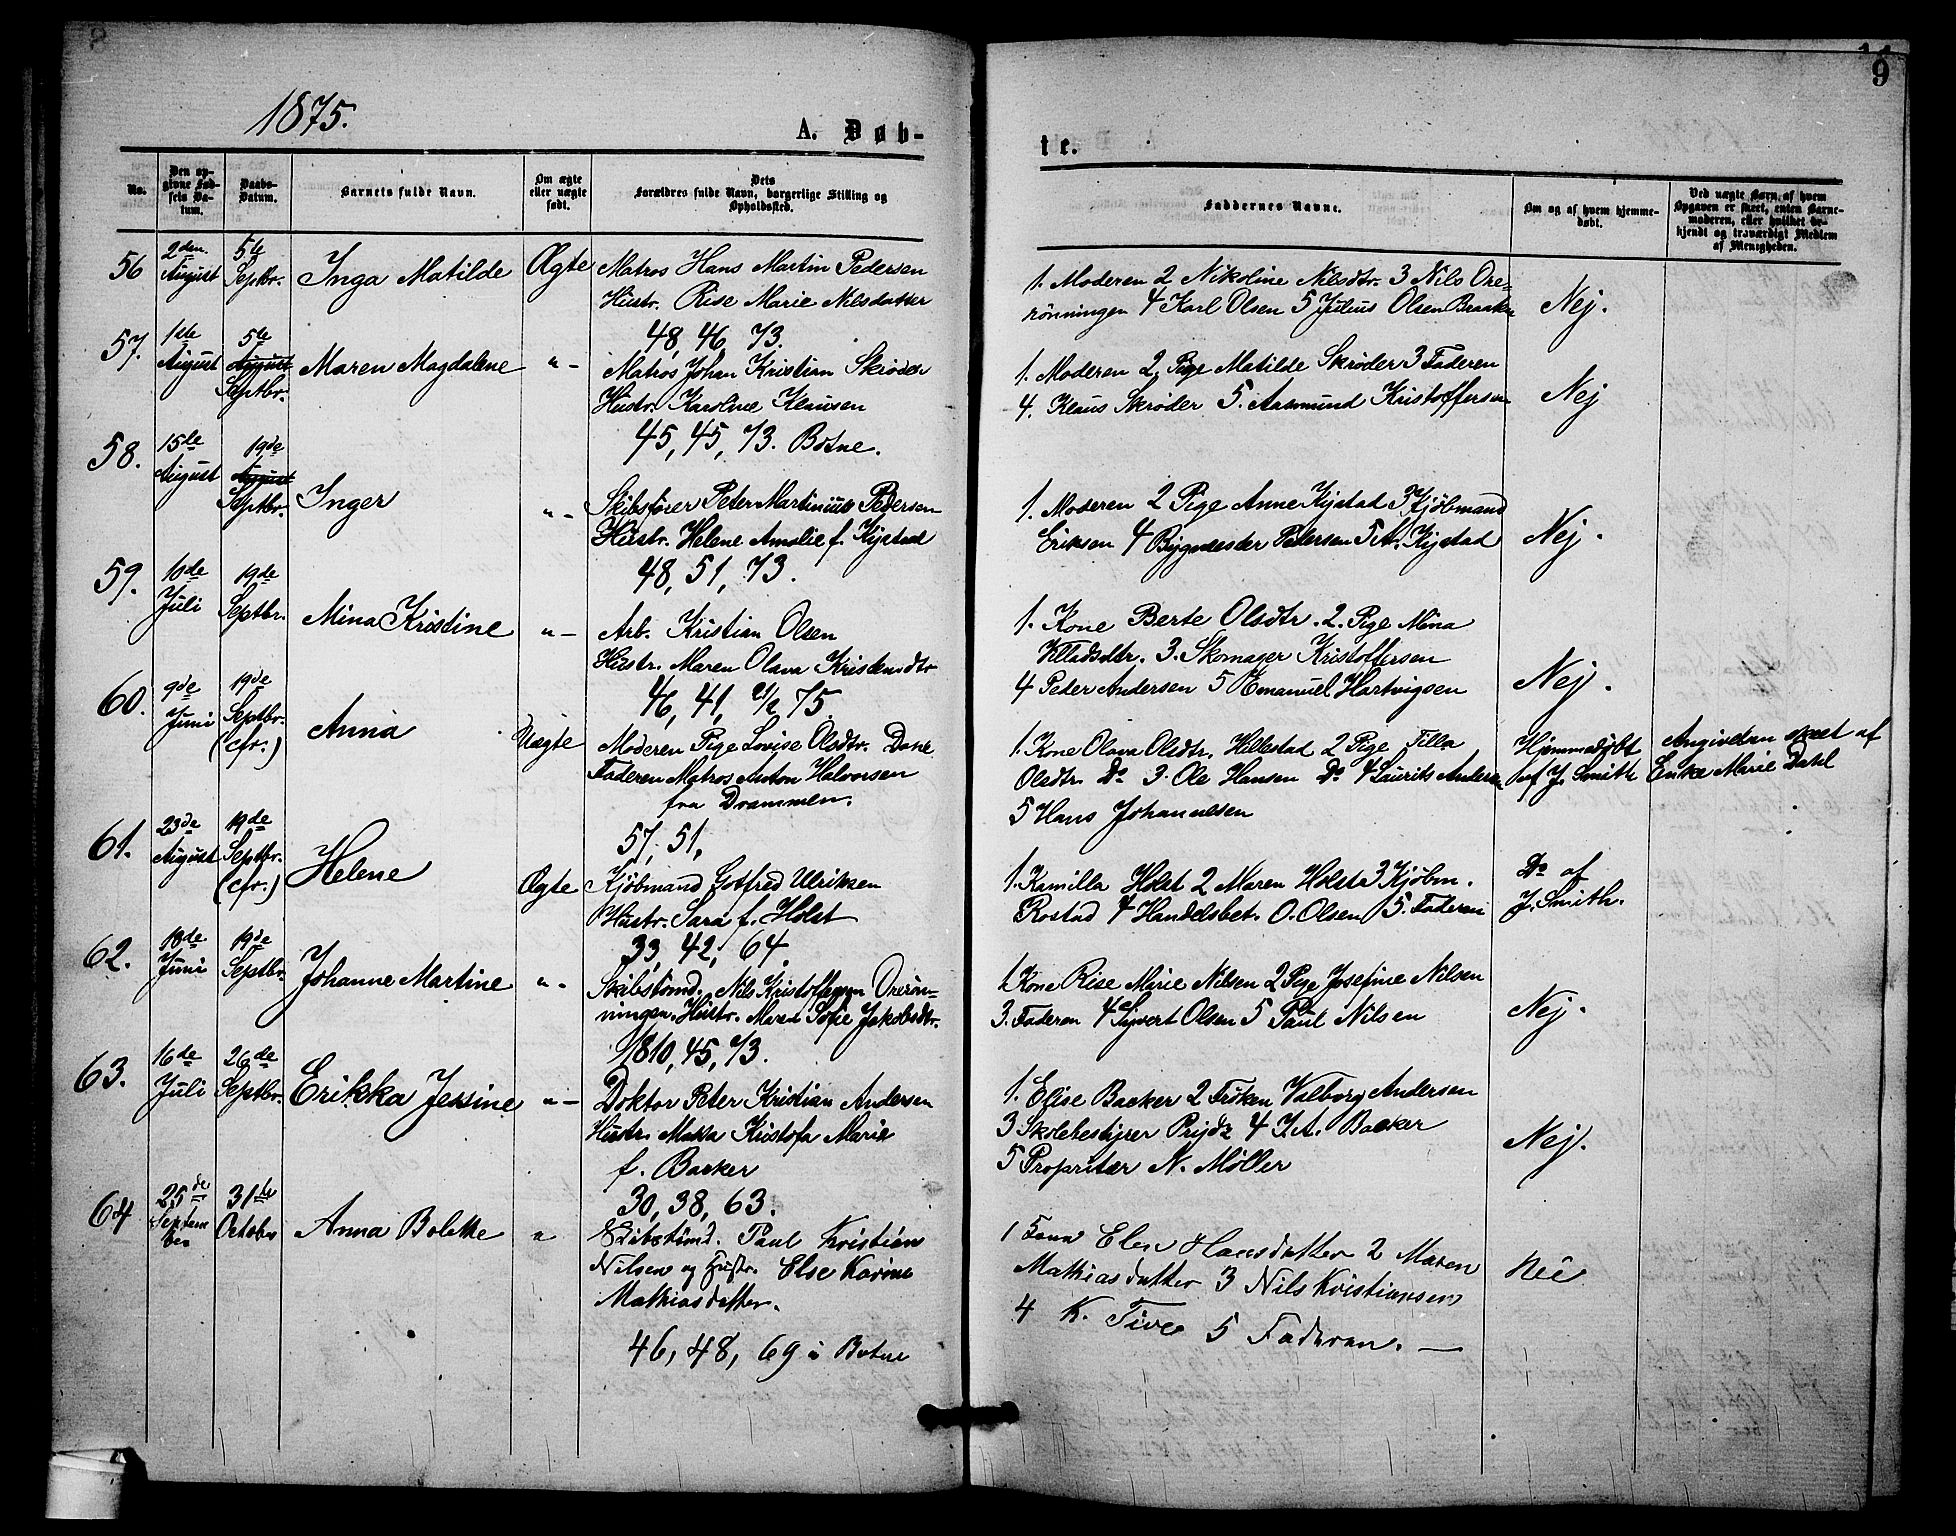 8
9
1875.
A. Døb-
te.
No.
Den op-
givne Fød-
sels Da-
tum.
Daabs-
Datum.
Barnets fulde Navn.
Om ægte
eller uægte
født.
Dets
Forældres fulde Navn, borgerlige Stilling og
Opholdssted.
Faddernes Navne.
Om og af hvem hjemme-
døbt.
Ved uægte Barn, af hvem
Opgaven er skeet, enten Barne-
moderen, eller hvilket be-
kjendt og troværdigt Medlem
af Menigheden.
56
2den
August
5te
Septbr.
Inga Matilde
Ægte
Matros Hans Martin Pedersen
Hustr. Rise Marie Nilsdatter
48, 46, 73.
1. Moderen 2 Nikoline Nilsdtr. 3 Nils Ore-
rønningen 4 Karl Olsen 5 Julius Olsen
Nej.
57.
1ste
August
5te
August
Septbr.
Maren Magdalene
"-
Matros Johan Kristian Skrøder
Hustr. Karoline Klausen
45, 45, 73. Botne.
1. Moderen 2. Pige Matilde Skrøder 3 Faderen
4. Klaus Skrøder 5. Aasmund Kristoffersen
Nej
58.
15de
August
19de
August
Septbr.
Inger
"-
Skibsfører Peter Martinius Pedersen
Hustr. Helene Amalie f. Kjøstad
48, 51, 73.
1. Moderen 2 Pige Anne Kjøstad 3 Kjøbmand
Eriksen 4 Pedersen 5 A. Kjøstad
Nej.
59.
10de
Juli
19de
Septbr.
Mina Kristine
"-
Arb. Kristian Olsen
Hustr. Maren Olava Kristensdtr
46, 41, 21/2 75
1. Kone Berte Olsdtr. 2. Pige Mina
3. Skomager Kristoffersen
4 Peder Andersen 5 Emanuel Hartvigsen
Nej.
60.
9de
Juni
19de
Septbr.
(cfr.)
Anna
Uægte
Moderen Pige Lovise Olsdtr.
Faderen Matros Anton Halvorsen
fra Drammen.
57, 51,
1. Kone Olava Olsdtr. Hillestad 2 Pige Tilla
Olsdtr. Do 3. Ole Hansen Do 4 Laurits Anders
5 Hans Johannesen
Hjemmedøbt
af J. Smith
Angivelsen skeet af
Enke Marie Dahl
61.
23de
August
19de
Septbr.
(cfr.)
Helene
Ægte
Kjøbmand Gotfred Ulriksen
Hustr. Sara f. Holst
33, 42, 64.
1. Kamilla Holst 2 Maren Holst 3 Kjøbm.
Rostad 4 Handelsbet. O. Olsen 5. Faderen
Do af
J. Smith.
62.
18de
Juni
19de
Septbr.
Johanne Martine
"-
Skibstømd. Nils Kristoffersen Orerøn-
ningen. Hustr. Maren Sofie Jakobsdtr.
1810, 45, 73.
1 Kone Rise Marie Nilsen 2 Pige Josefine Nilsen
3. Faderen 4 Syvert Olsen 5 Paul Nilsen
Nej.
63.
16de
Juli
26de
Septbr.
Erikka Jessine
"-
Doktor Peter Kristian Andersen
Hustr. Kristofa Marie
f. Backer
30, 38, 63.
1. Elise Backer 2 Frøken Valborg Andersen
3 Skolebestyrer Prydz 4 J. A. Backer
5 Propritær N. Møller
Nej.
64
25de
Septem
ber
31te
October
Anna Bolette
"
Skibstømd. Paul Kristian
Nilsen og Hustr. Else Karine
Mathiasdatter.
46, 48, 69 i Botne
1 Elen Hansdatter 2 Maren
Mathiasdatter 3 Nils Kristiansen
4 K. Tive 5 Faderen. —
Nei